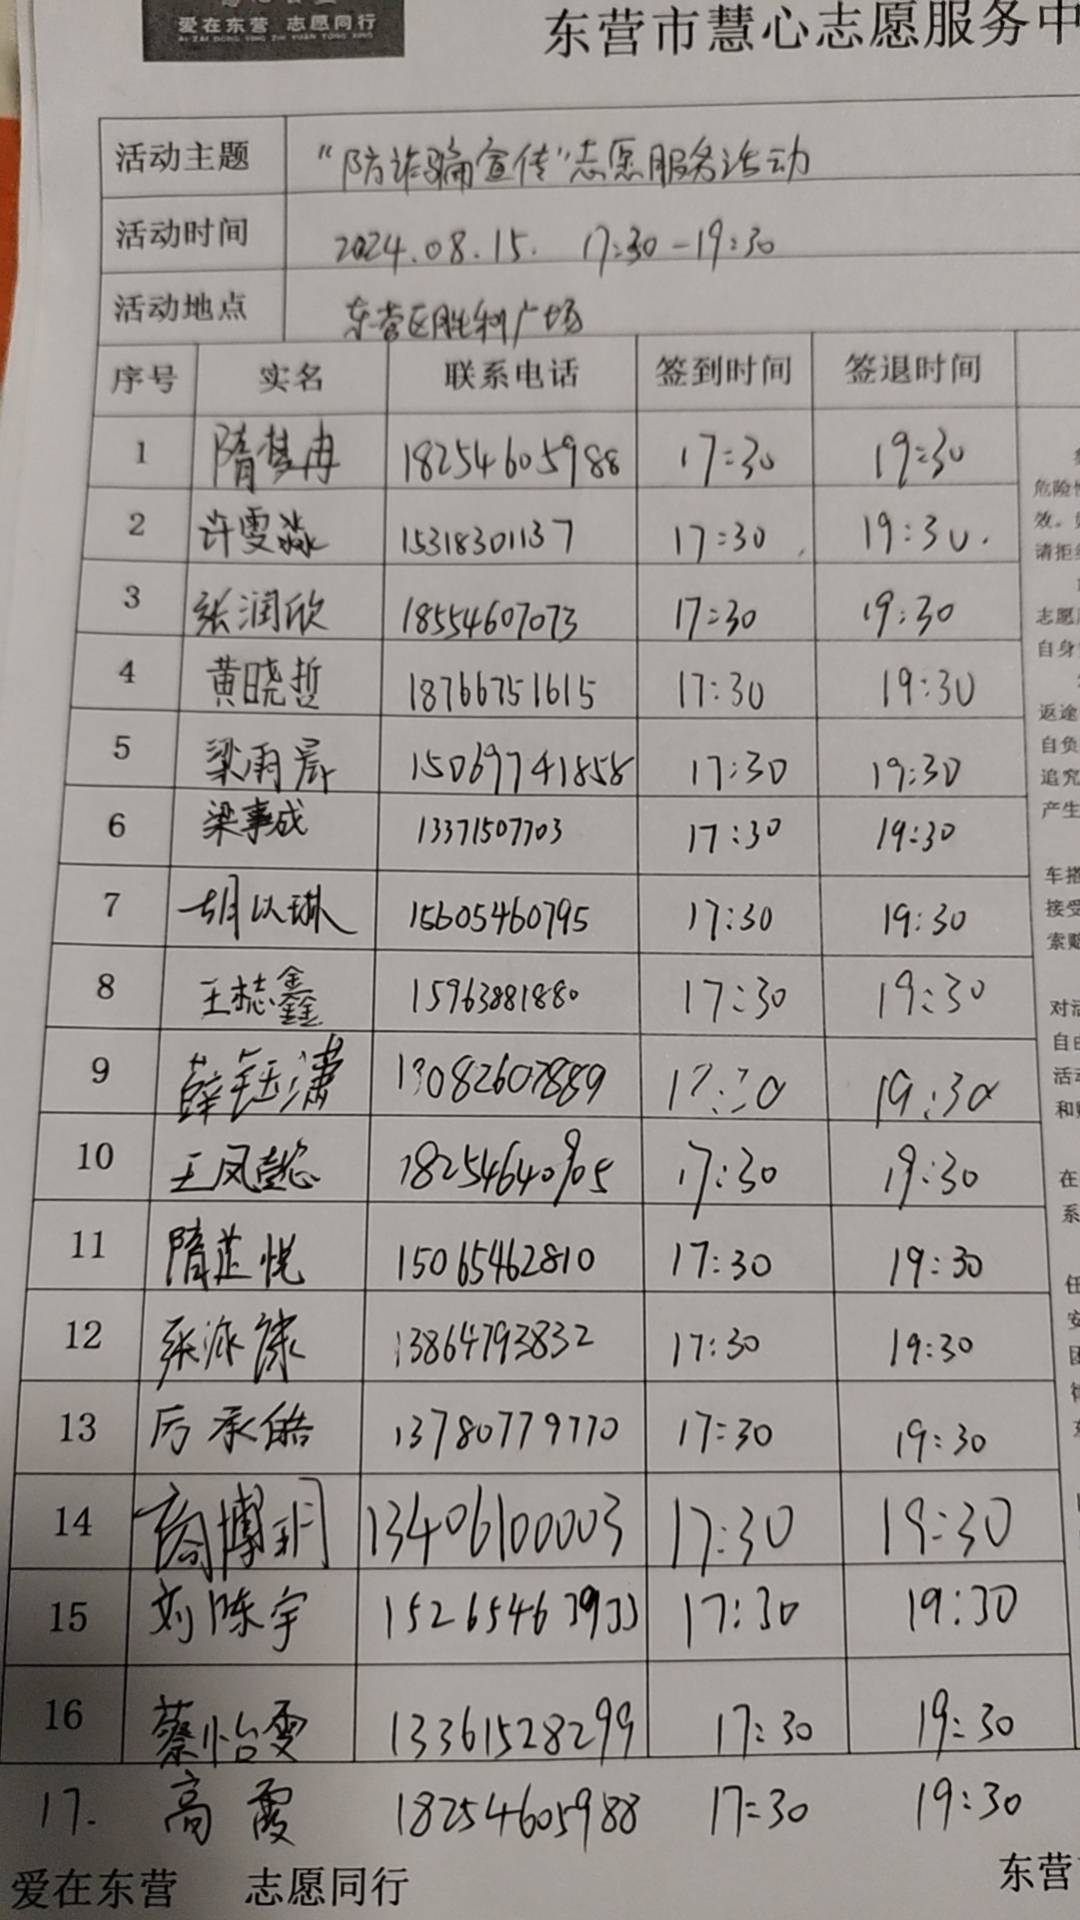 爱在东营 志愿同行
AI ZAI DONG YING ZHI YUAN TONG XING
东营市慧心志愿服务中
活动主题 “防诈骗宣传”志愿服务活动
活动时间 2024.08.15. 17:30-19:30
活动地点 东营区胜利广场
序号 实名 联系电话 签到时间 签退时间
1 隋梦冉 18254605988 17:30 19:30
2 许雯淼 15318301137 17:30 19:30.
3 张润欣 18554607073 17:30 19:30
4 黄晓哲 18766751615 17:30 19:30
5 梁雨宸 15069741858 17:30 19:30
6 梁事成 13371507703 17:30 19:30
7 胡以琳 15605460795 17:30 19:30
8 王志鑫 15963881880 17:30 19:30
9 薛钰潇 13082607889 17:30 19:30
10 王凤懿 18254640905 17:30 19:30
11 隋芷悦 15065462810 17:30 19:30
12 张 13864793832 17:30 19:30
13 厉承皓 13780779770 17:30 19:30
14 商博玥 13406100003 17:30 19:30
15 刘陈宇 15265463933 17:30 19:30
16 蔡怡雯 13361528299 17:30 19:30
17. 高霞 18254605988 17:30 19:30
危险
效。
请拒
志愿
自身
返途
自负
追究
产生
车搭
接受
索赔
对活
自由
活动
和
在
系
任
安
团
爱在东营 志愿同行
东营